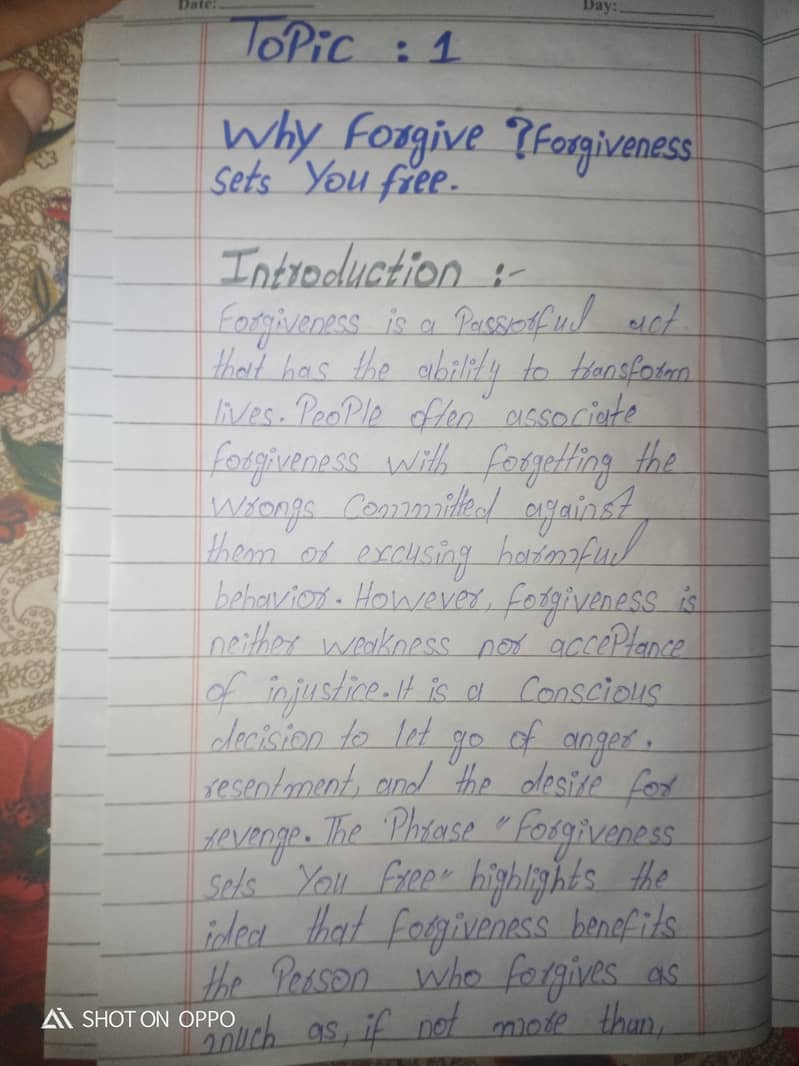 Date:
Day:
ToPic : 1
Why Forgive ? Forgiveness
Sets You free.
Introduction :-
Forgiveness is a act
that has the ability to transform
lives. PeoPle often associate
forgiveness with forgetting the
wrongs committed against
them or excusing harmful
behavior. However, forgiveness is
neither weakness nor accePtance
of injustice. It is a Conscious
decision to let go of anger,
resentment, and the desire for
revenge. The Phrase "Forgiveness
Sets You Free" highlights the
idea that forgiveness benefits
the Person who forgives as
much as, if not more than,
SHOT ON OPPO